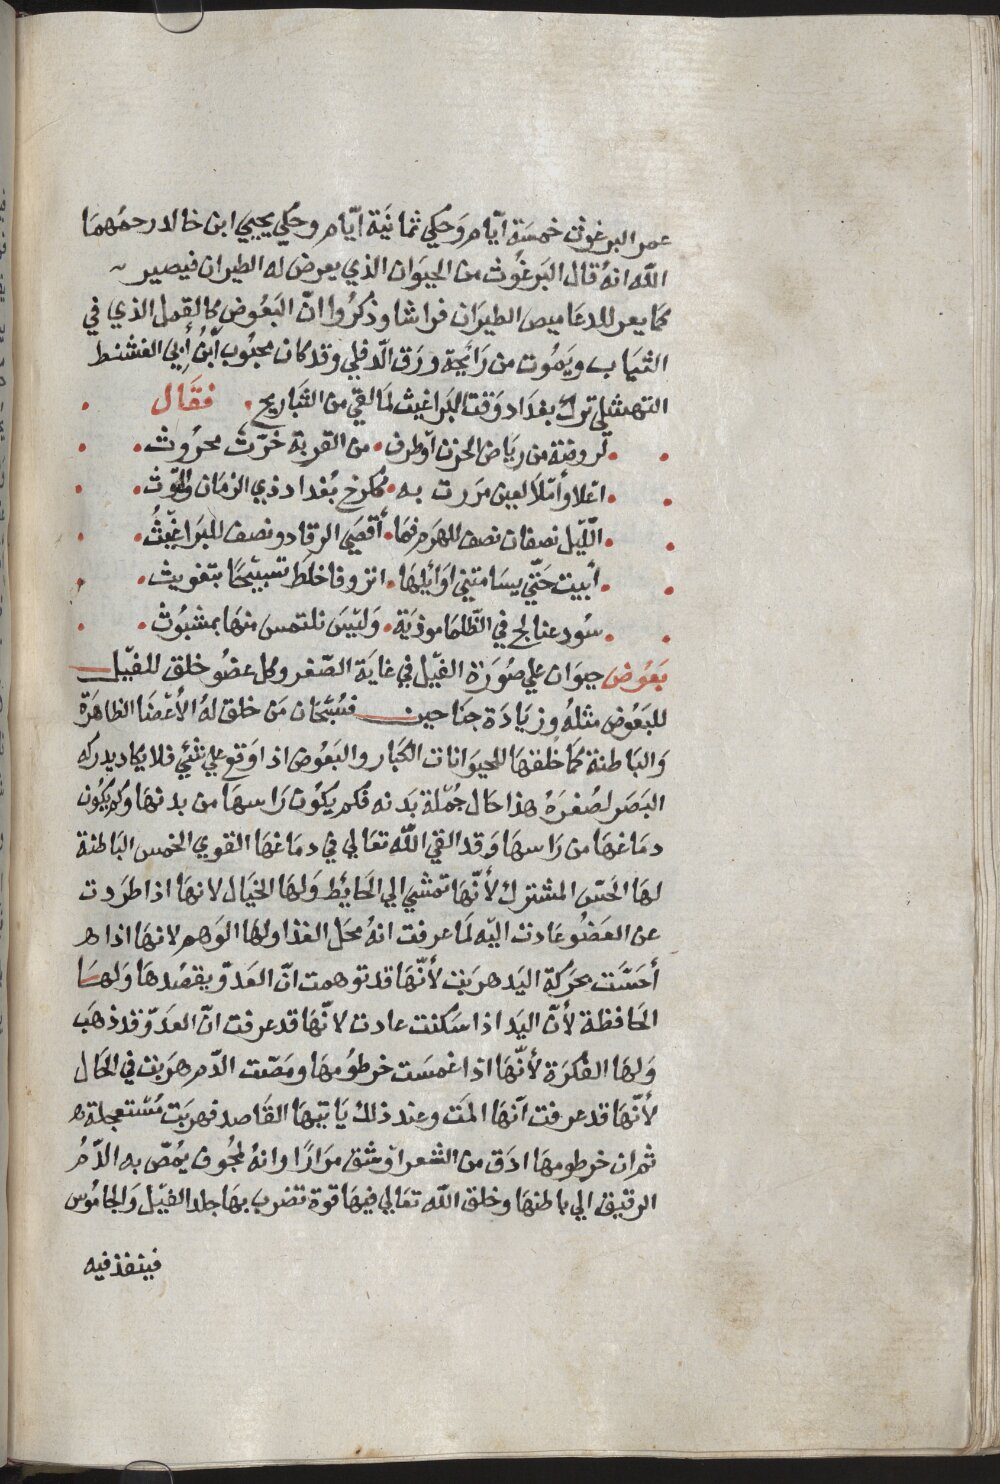 عمر البرغوث خمسَة ايّام وَحُكي ثمانيَة ايّام وحُكي يحيي ابن خالد رحمُهمَا
اللّه انهُ قال البَرغُوث من الحيَوان الذي يعرض له الطيران فيصير
كما يعر للدعَاميص الطيرَان فراشا وذكرُوا انّ البَعُوض كالقمل الذي في
الثيَاب ويَموُت من رَائِجة ورَق الّدفلي وقد كان محبُوب ابْنُ أبي العشنط
النهشلي ترك بغدَاد وَقت البَراغيث لمَا لقي من التَباريح فقَال
لروضة من ريَاض الحزن اوَطرف من القرية خَرّت محرُوث
احلا وأملاَ لعين مرَرت به مكرخ بُغداد ذي الزمَان والتّوث
اللّيل نصفان نصف للهَم فما أقضي الرقاد ونصف للبَراغيْث
أبيت حَتّي يسَامتني اوَائلها انزو فاخلط تسبيْحًا بتغويث
سُود عنالج في الظلما موذيَة وَليْسَ نلتمس منهَا بمشبُوث
بَعُوض حيوَان علي صُورَة الفيْل في غايَة الصّغر وكل عضُو خلق للفيْل
للبَعُوض مثلهُ وزيَادَة جنَاحين فسُبْحَان مَن خلق لهُ الأعْضَا الظاهرَة
وَالبَاطنة كمَا خُلقهَا للحيَوانات الكبَار والبَعُوض اذا وَقع علي شَيْ فلا يكاد يدركه
البَصَر لصُغرَهُ هذا حَال جُمْلة بَدنه فكم يكُون رَاسهَا من بدنهَا وكم يكُون
دمَاغهَا من رَاسهَا وَقد القي اللّه تعَالي في دمَاغهَا القوي الخمس البَاطنة
لهَا الحَسّ المشترك لأنّهَا تمشي الي الحَايُط وَلهَا الخيَال لانهَا اذا طرَدت
عن العَضُو عَادت اليْه لمَا عرفت انهُ محَل الغذا ولهَا الوَهم لانهَا اذا ه
أحسَّت بحرَكة اليَد هربَت لأنّهَا قد توَهمت انّ العَدوّ يقصُدهَا وَلهسَا
الحَافظة لأنّ اليَد اذا سَكنت عادت لانّهَا قد عرفت انّ العدَوّ قد ذهَب
وَلهَا الفكرَة لأنّهَا اذا غمسَت خرطوُمهَا ومَصّت الدّم هرَبت في الحَال
لأنّهَا قد عرفت اَنهَا المَت وعند ذلك يَاتيهَا القَاصد فهربَت مُسْتعجلة ه
ثم ان خرطومهَا ادَق من الشعر اوْ شق مرَارًا وانهُ لمجُوف يمُصّ به الدّمُ
الرقيق الي باطنهَا وخلق اللّه تعَالي فيهَا قوة تضرب بهَا جلد الفيْل وَالجاموُس
فينفذ فيه